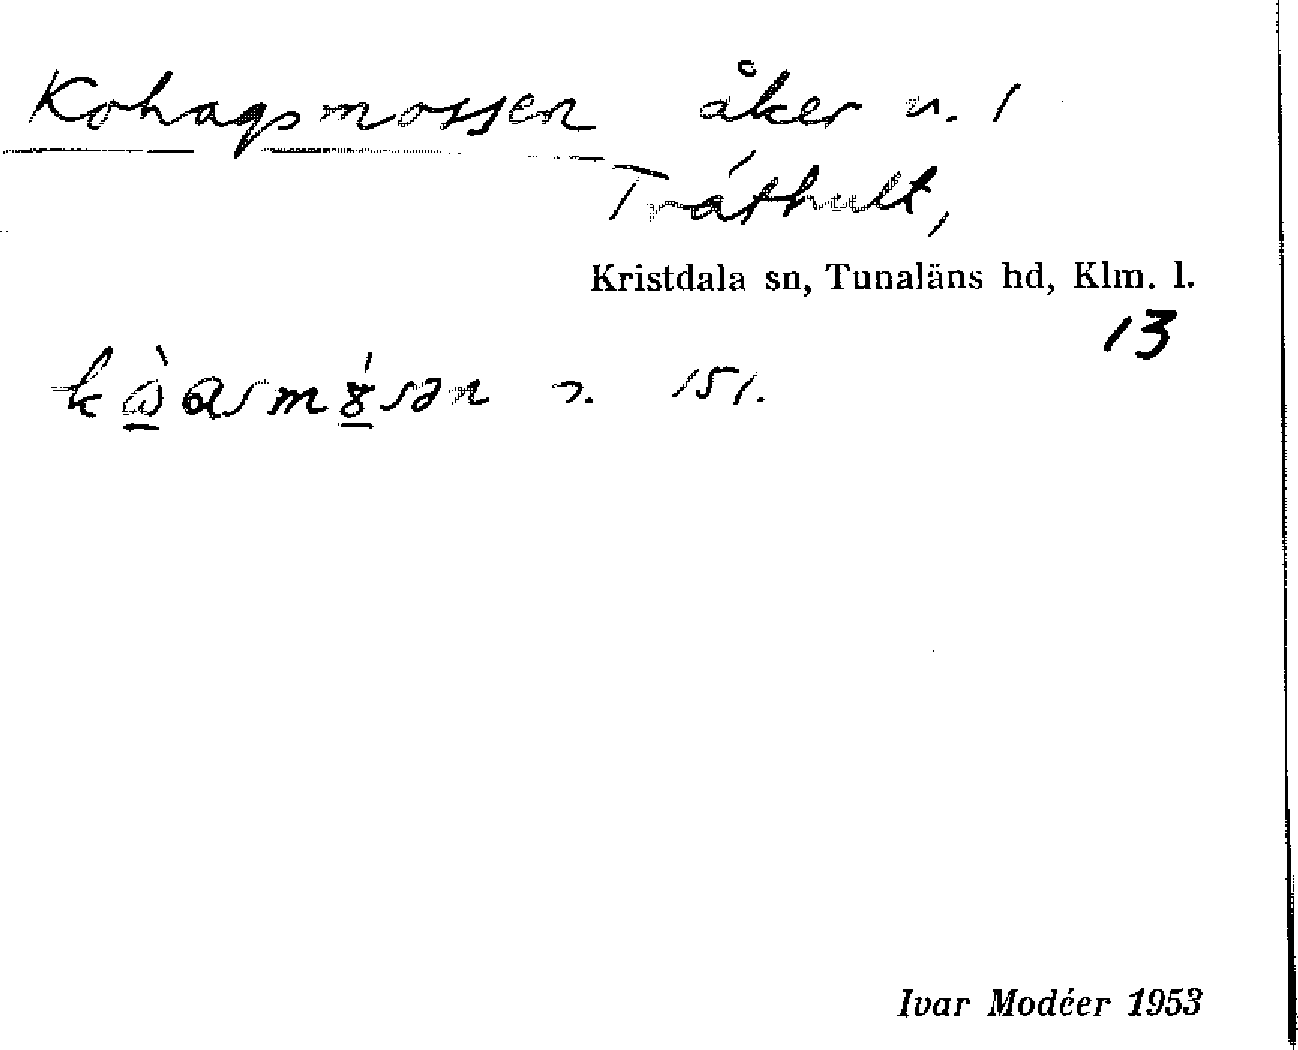 Kohagsmossen åker n. 1
Tråthult,
Kristdala sn, Tunaläns hd, Klm. l.
13
151.
Ivar Modéer 1953